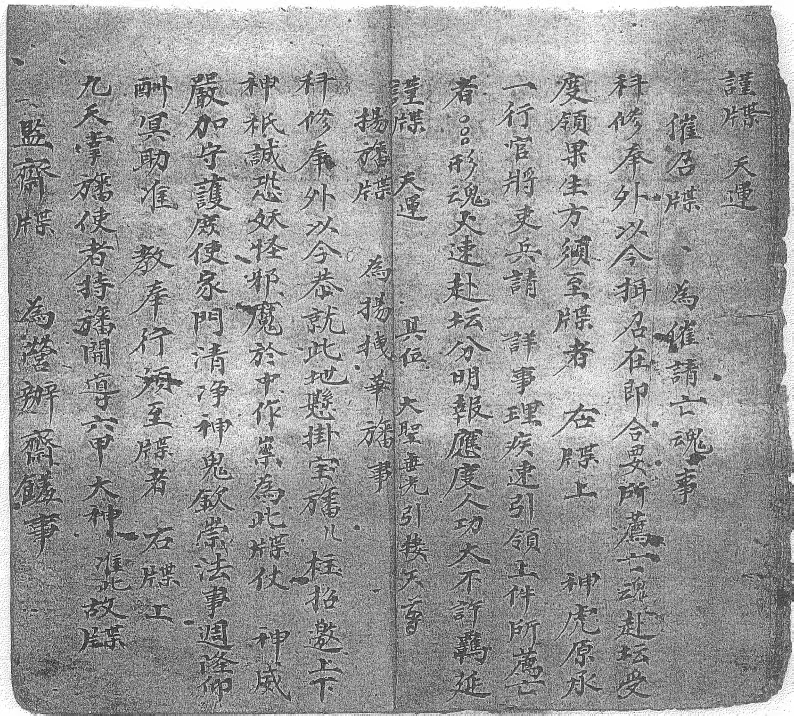 謹牒 天運
催召牒 為催請亡魂事
科修奉外以今揖召在即合要所薦亡魂赴坛受
度領果生方須至牒者 右牒上 神虎原承
一行官將吏兵請 詳事理疾速引領上件所薦亡
者 形魂火速赴坛分明報應度人功大不許羈延
謹牒 天運 具位 大聖 引接天尊
揚旛牒 為揚掛華旛事
科修奉外以今恭就此地懸掛宝旛八柱招邀上下
神祇誠恐妖怪邪魔於中作祟為此牒仗 神威
嚴加守護庶使家門清净神鬼欽崇法事週隆仰
酧冥助准 教奉行須至牒者 右牒上
九天掌旛使者持旛開導六甲大神 准此故牒
監齋牒 為營辦齋饈事